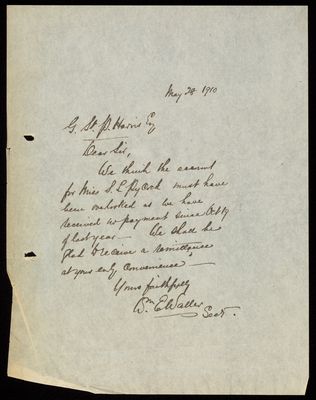 May 28 1910
G. St. P. Harris Esq
Dear Sir,
We think the account
for Miss S. E. Pycock must have
been overlooked as we have
received no payment since Oct 19
of last year — We shall be
glad to receive a remittance
at your early convenience —
Yours faithfully
Wm E Waller
Sect.